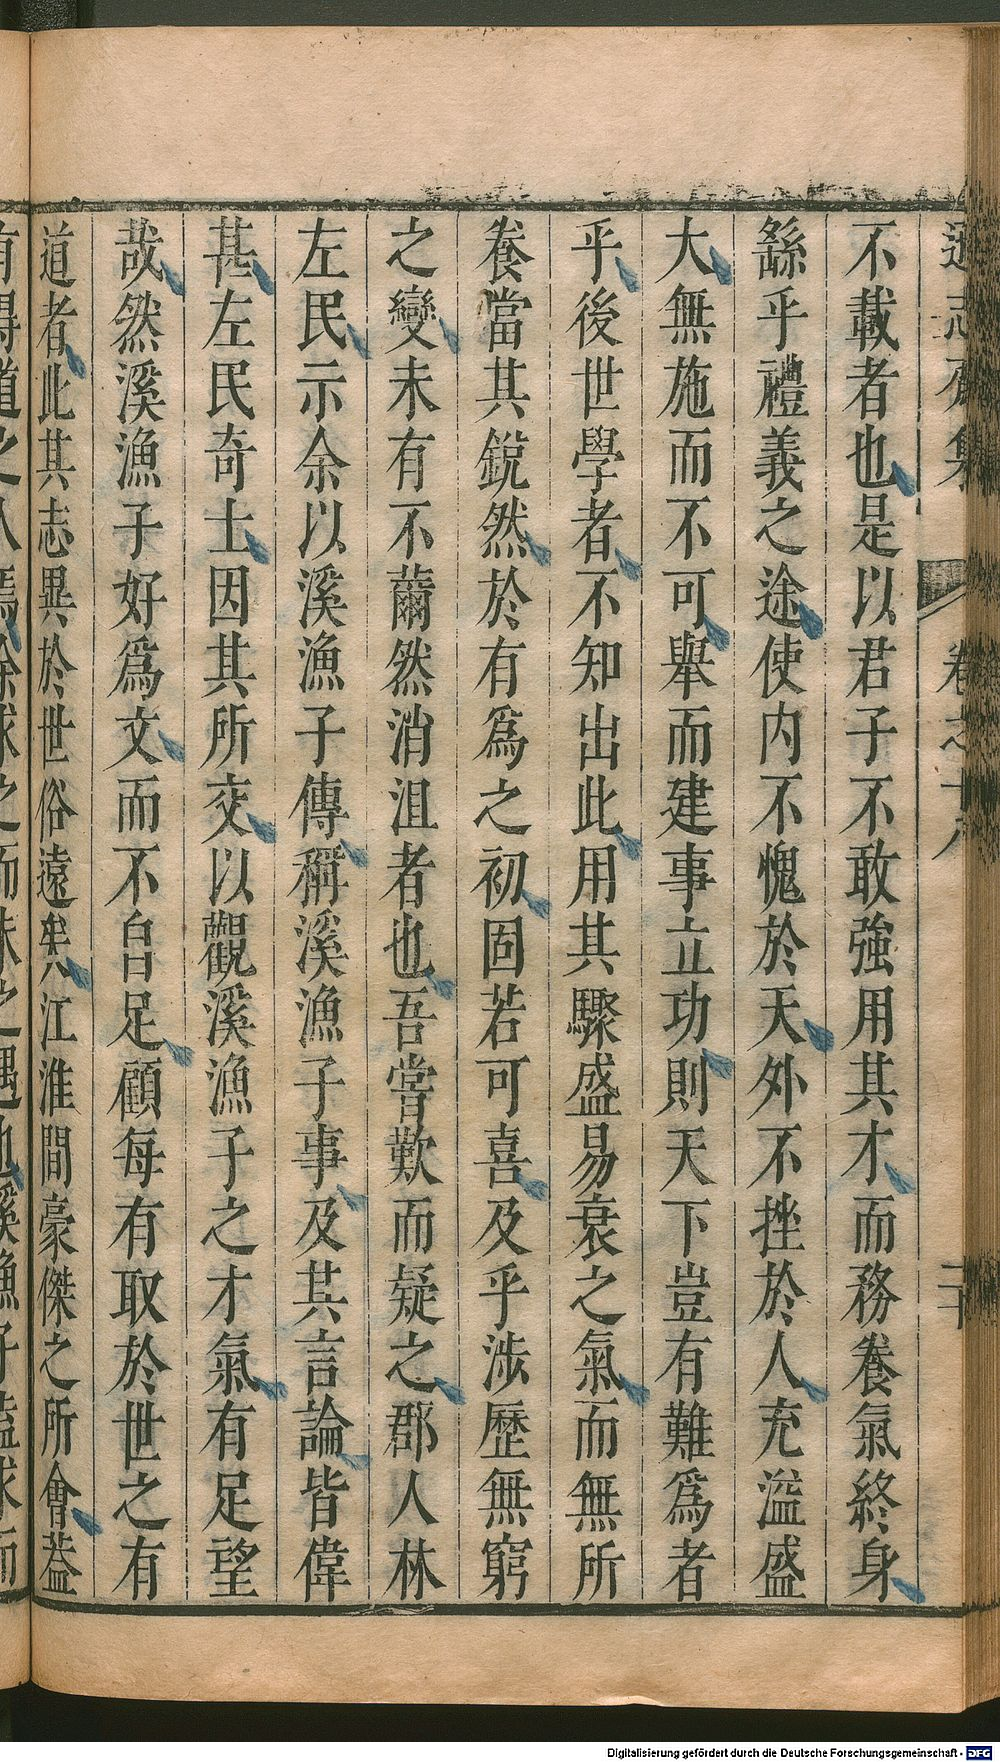 不載者也是以君子不敢強用其才而務養氣終身
繇乎禮義之途使内不愧於天外不挫於人充溢盛
大無施而不可舉而建事立功則天下豈有難爲者
乎後世學者不知出此用其驟盛易衰之氣而無所
養當其銳然於有爲之初固若可喜及乎涉歷無窮
之變未有不薾然消沮者也吾嘗歎而疑之郡人林
左民示余以溪漁子傳稱溪漁子事及其言論皆偉
甚左民奇士因其所交以觀溪漁子之才氣有足望
哉然溪漁子好爲文而不自足顧每有取於世之有
道者此其志異於世俗遠矣江淮間豪傑之所會葢
卷之十八
二十
Digitalisierung gefördert durch die Deutsche Forschungsgemeinschaft - DFG